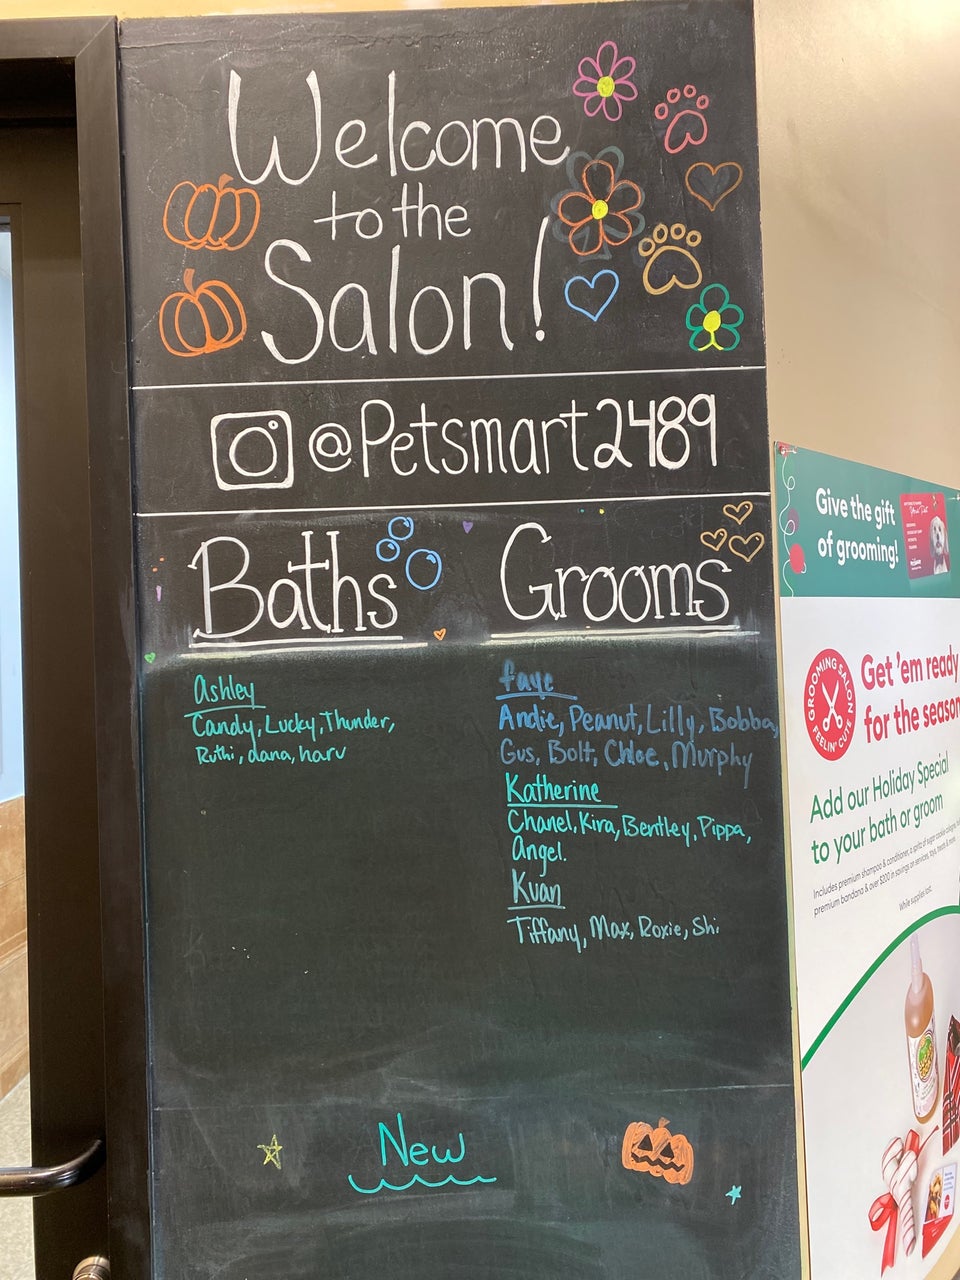 Welcome
to the
Salon!
@Petsmart2489
Baths
Grooms
Ashley
Candy, Lucky, Thunder,
Ruthi, dana, harv
faye
Andie, Peanut, Lilly, Bobba,
Gus, Bolt, Chloe, Murphy
Katherine
Chanel, Kira, Bentley, Pippa,
Angel.
Kuan
Tiffany, Max, Roxie, Shi
New
Give the gift
of grooming!
GROOMING SALON
FEELIN' CUTE
Get 'em ready
for the season
Add our Holiday Special
to your bath or groom
Includes premium shampoo & conditioner, a spritz of sugar cookie cologne,
premium bandana & over $200 in savings on services, toys, treats & more.
While supplies last.